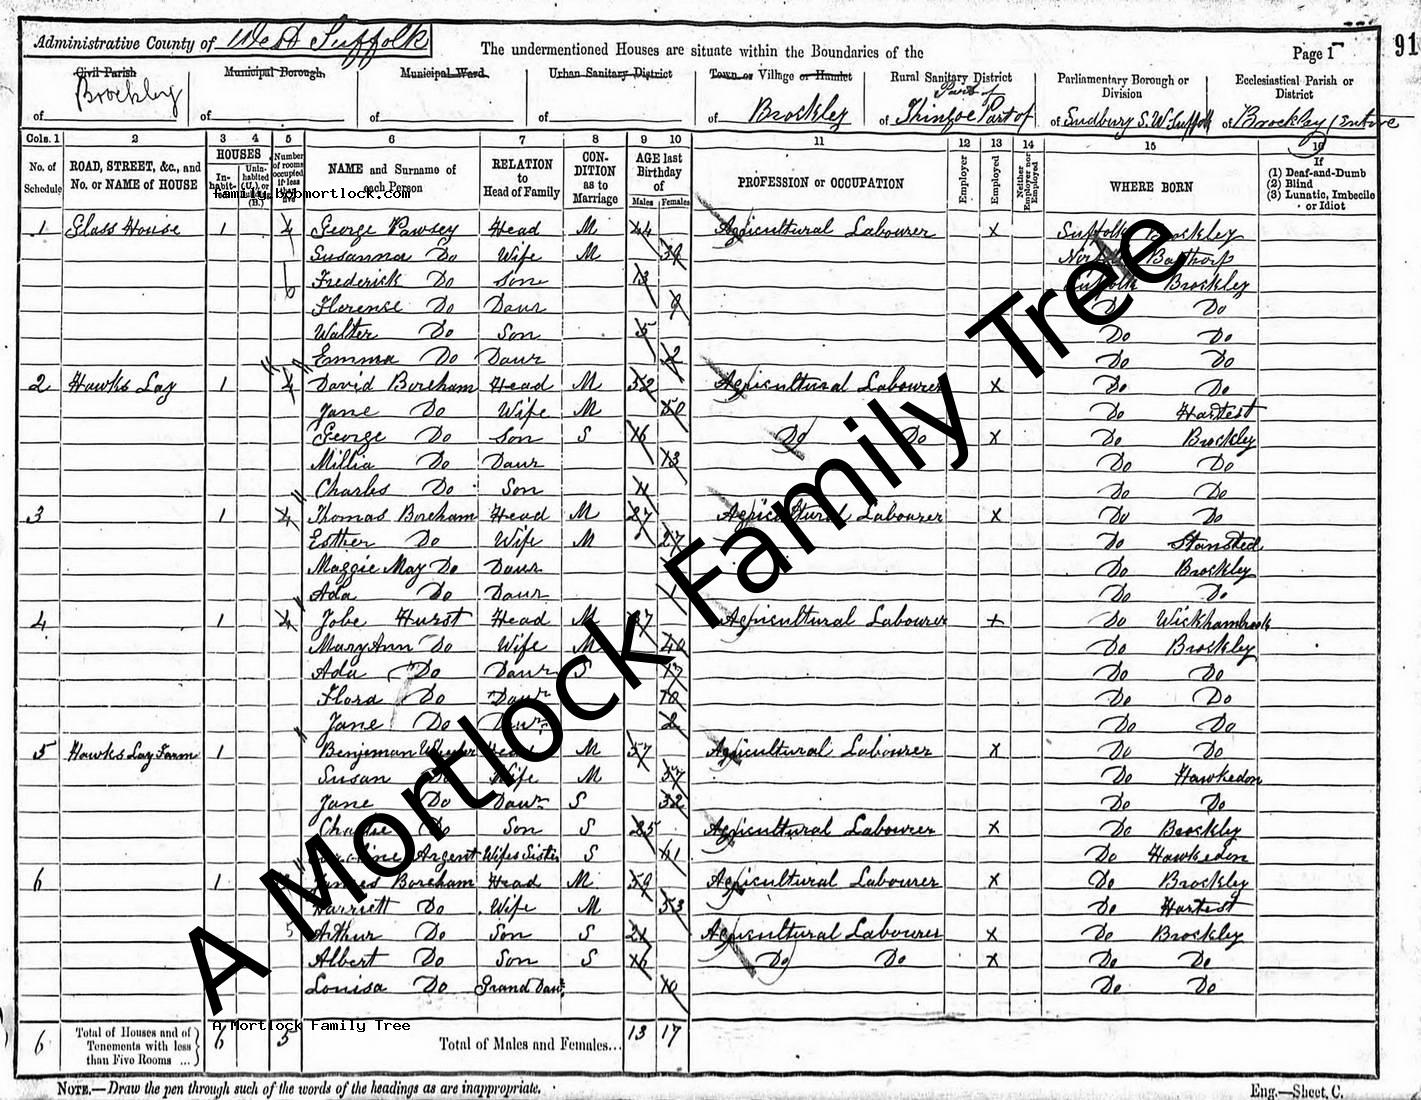 Administrative County of West Suffolk
The undermentioned Houses are situate within the Boundaries of the
Page 1
91
Civil Parish of Brockley
Municipal Borough of
Municipal Ward of
Urban Sanitary District of
Town or Village or Hamlet of Brockley
Rural Sanitary District of Thingoe Part of
Part of
Parliamentary Borough or Division of Sudbury S. W. Suffolk
Ecclesiastical Parish or District of Brockley Entire
Cols. 1 2 3 4 5 6 7 8 9 10 11 12 13 14 15 16
No. of Schedule
ROAD, STREET, &c., and No. or NAME of HOUSE
HOUSES
In-habit-
Unin-habited (U.), or
(B.)
Number of rooms occupied if less
NAME and Surname of each Person
RELATION to Head of Family
CON-DITION as to Marriage
AGE last Birthday of
Males Females
PROFESSION or OCCUPATION
Employer
Employed
Neither Employer nor Employed
WHERE BORN
If
(1) Deaf-and-Dumb
(2) Blind
(3) Lunatic, Imbecile or Idiot
family.bobmortlock.com
1 Glass House 1 4 George Pawsey Head M 44 Agricultural Labourer x Suffolk Brockley
Susanna Do Wife M 39
Frederick Do Son 13 Suffolk Brockley
6
Florence Do Daur 9 Do Do
Walter Do Son 5 Do Do
Emma Do Daur 2 Do Do
2 Hawks Lay 1 4 David Boreham Head M 52 Agricultural Labourer x Do Do
Jane Do Wife M 50 Do Hartest
George Do Son S 16 Do Do x Do Brockley
Millia Do Daur 13 Do Do
Charles Do Son 11 Do Do
3 1 4 Thomas Boreham Head M 27 Agricultural Labourer x Do Do
Esther Do Wife M 27 Do Stansted
Maggie May Do Daur Do Brockley
Ada Do Daur 1 Do Do
4 1 4 Jobe Hurst Head M 37 Agricultural Labourer x Do Wickhambrook
Mary Ann Do Wife M 40 Do Brockley
Ada Do Daur S 17 Do Do
Flora Do Daur 10 Do Do
Jane Do Daur 2 Do Do
5 Hawks Lay Farm 1 Benjeman Head M 57 Agricultural Labourer x Do Do
Susan Do Wife M 57 Do Hawkedon
Jane Do Daur S 32 Do Do
Charlie Do Son S 25 Agricultural Labourer x Do Brockley
Argent Wifes Sister S 41 Do Hawkedon
6 1 James Boreham Head M 59 Agricultural Labourer x Do Brockley
Harriett Do Wife M 53 Do Hartest
5 Arthur Do Son S 21 Agricultural Labourer x Do Brockley
Albert Do Son S 16 Do Do x Do Do
Louisa Do Grand Daur 10 Do Do
A Mortlock Family Tree
A Mortlock Family Tree
6 Total of Houses and of Tenements with less than Five Rooms ... 6 5 Total of Males and Females... 13 17
NOTE.—Draw the pen through such of the words of the headings as are inappropriate.
Eng.—Sheet, C.